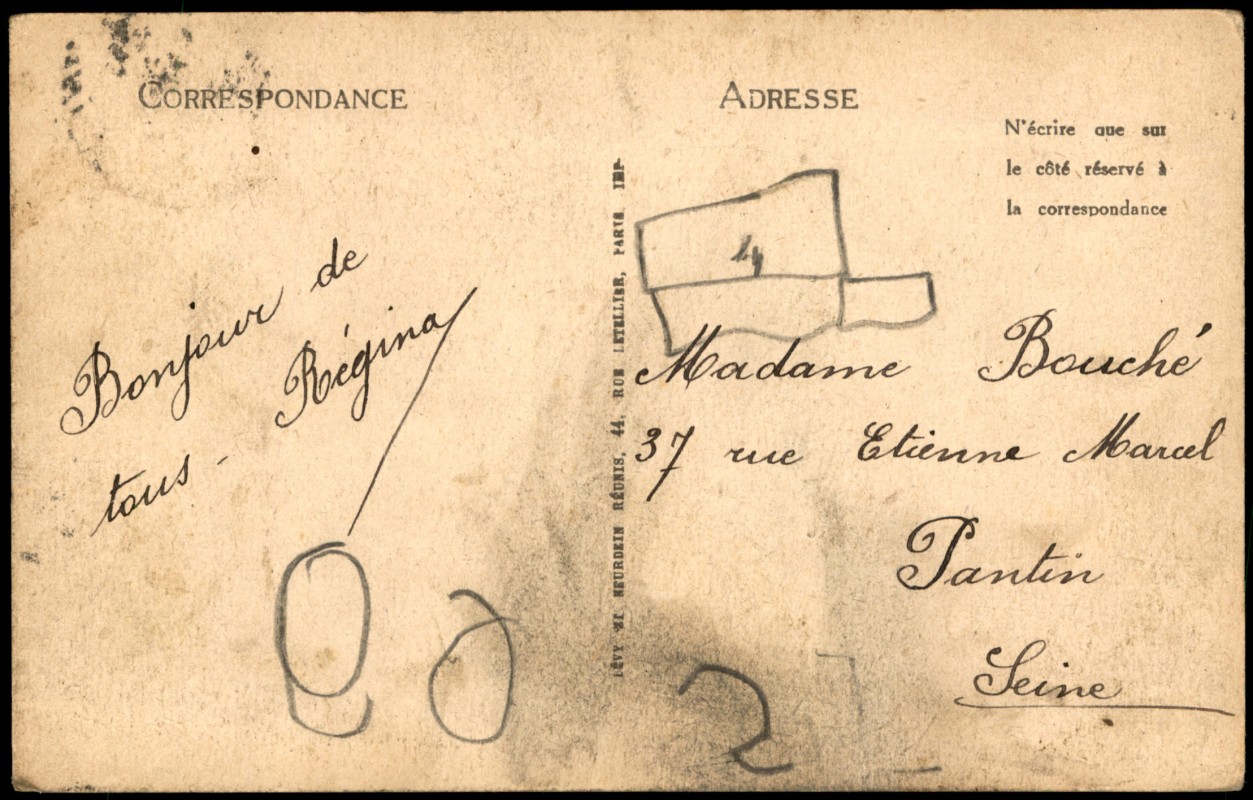 CORRESPONDANCE
Bonjour de
Régina
tous -
LÉVY ET NEURDEIN RÉUNIS, 44, RUE LETELLIER, PARIS IMP.
ADRESSE
N'écrire que sur
le côté réservé à
la correspondance
Madame Bouché
37 rue Etienne Marcel
Pantin
Seine